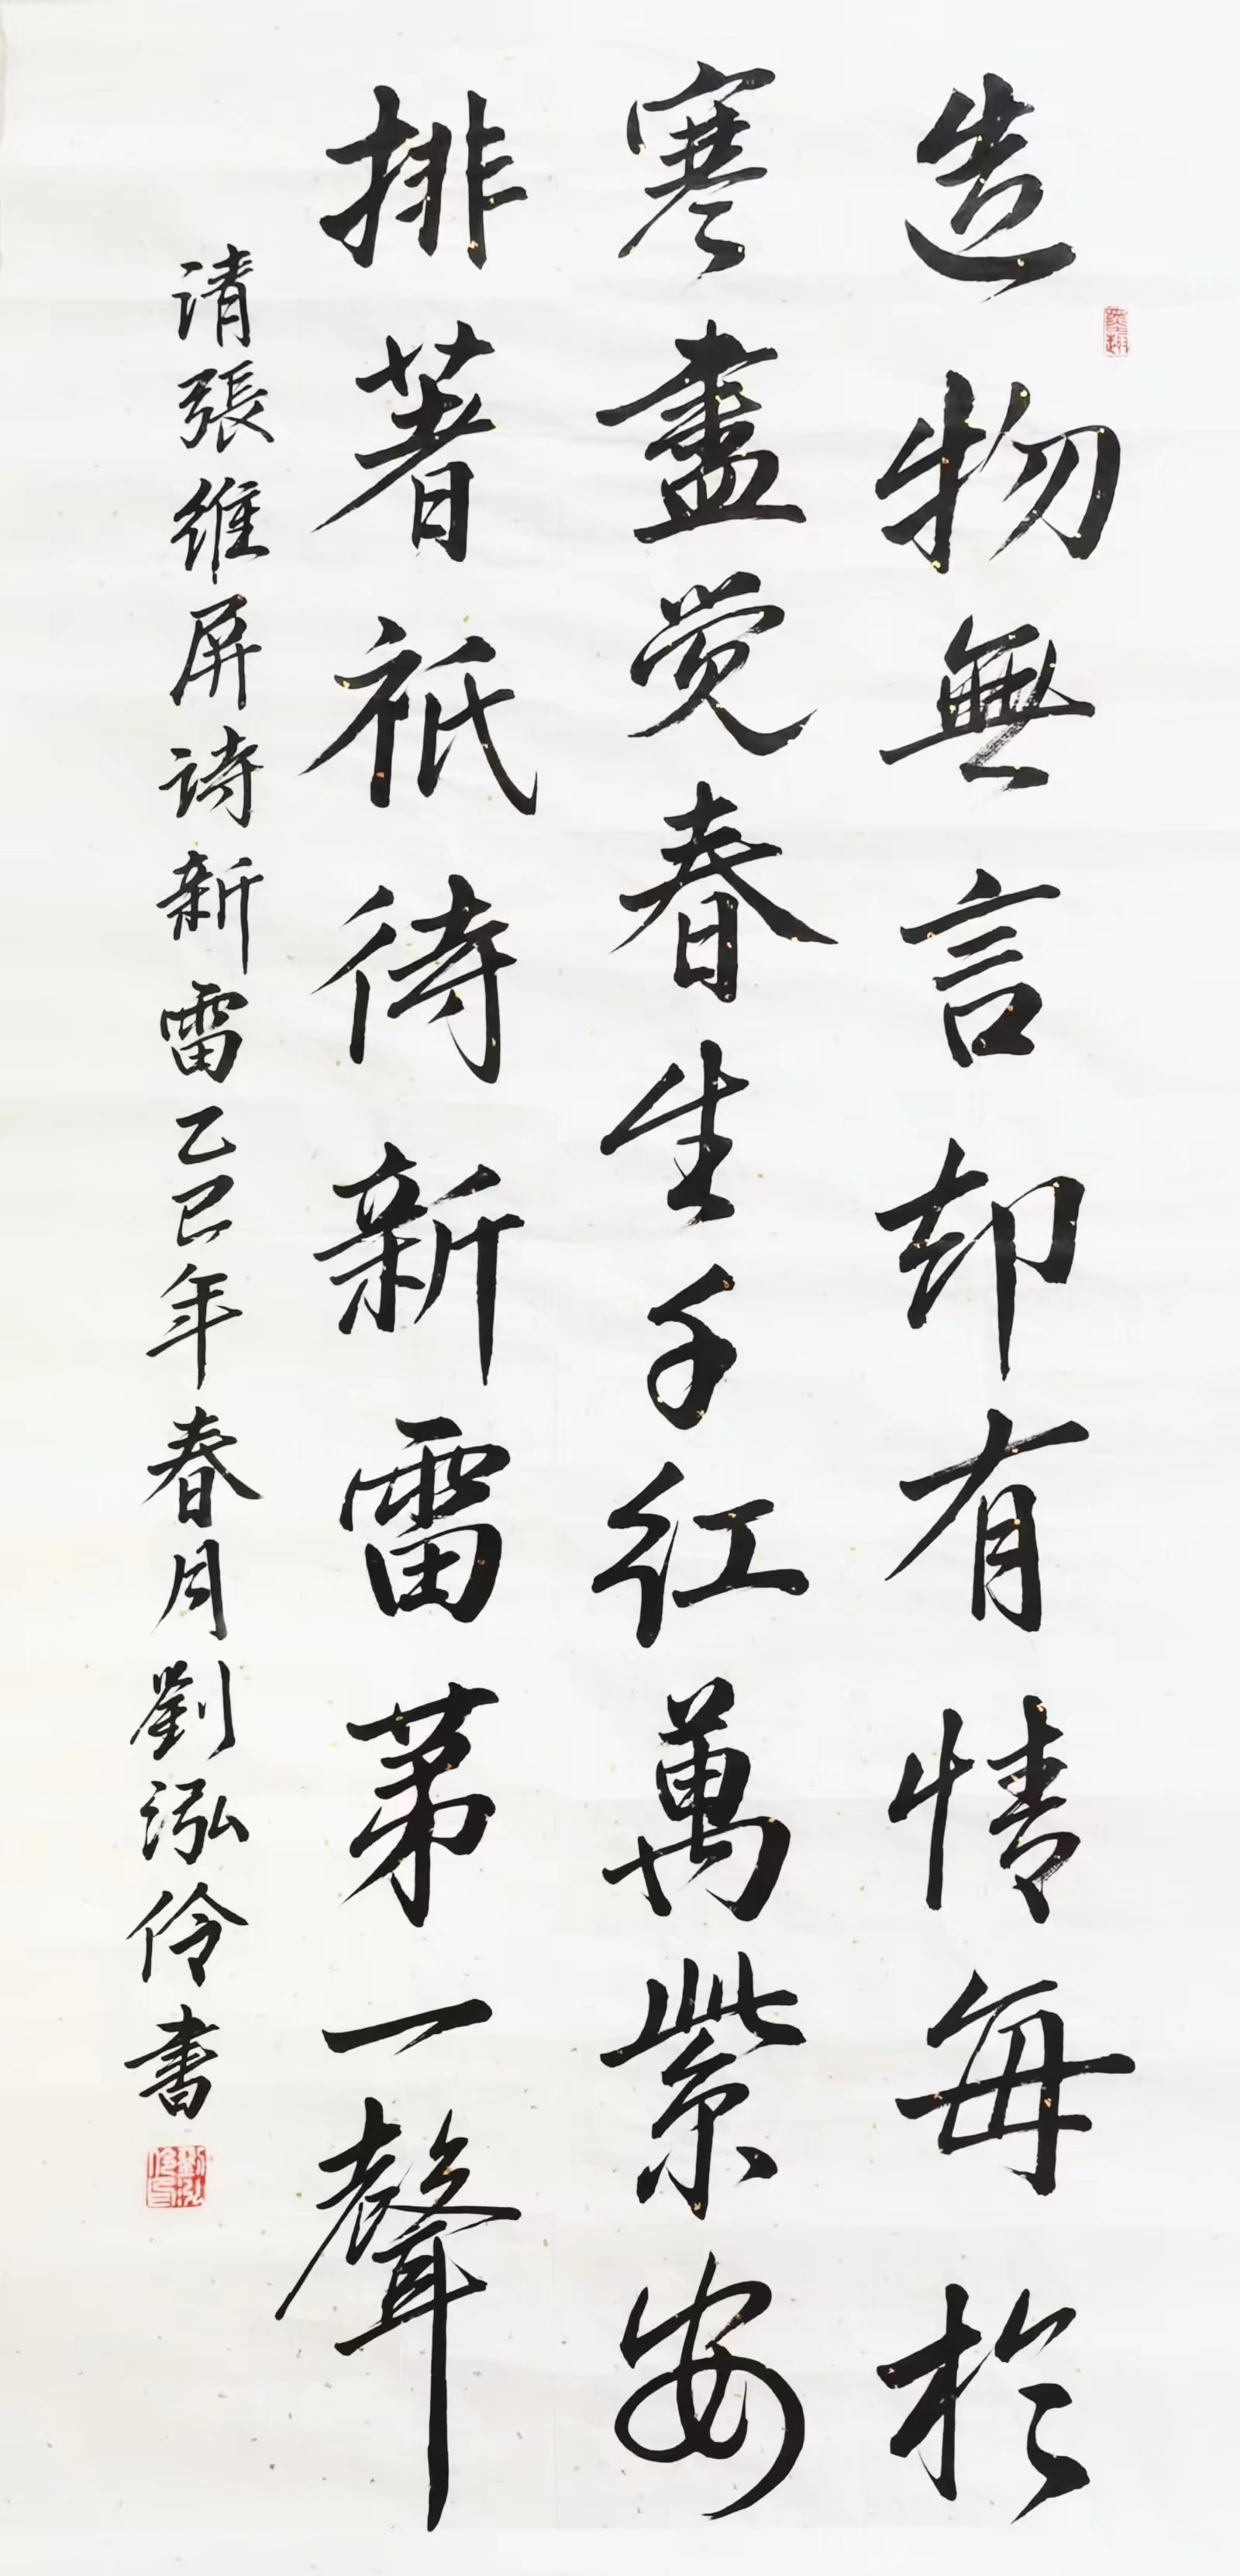 造物無言却有情每於
寒盡觉春生千红萬紫安
排著祇待新雷第一聲
清張維屏诗新雷乙巳年春月劉泓伶書